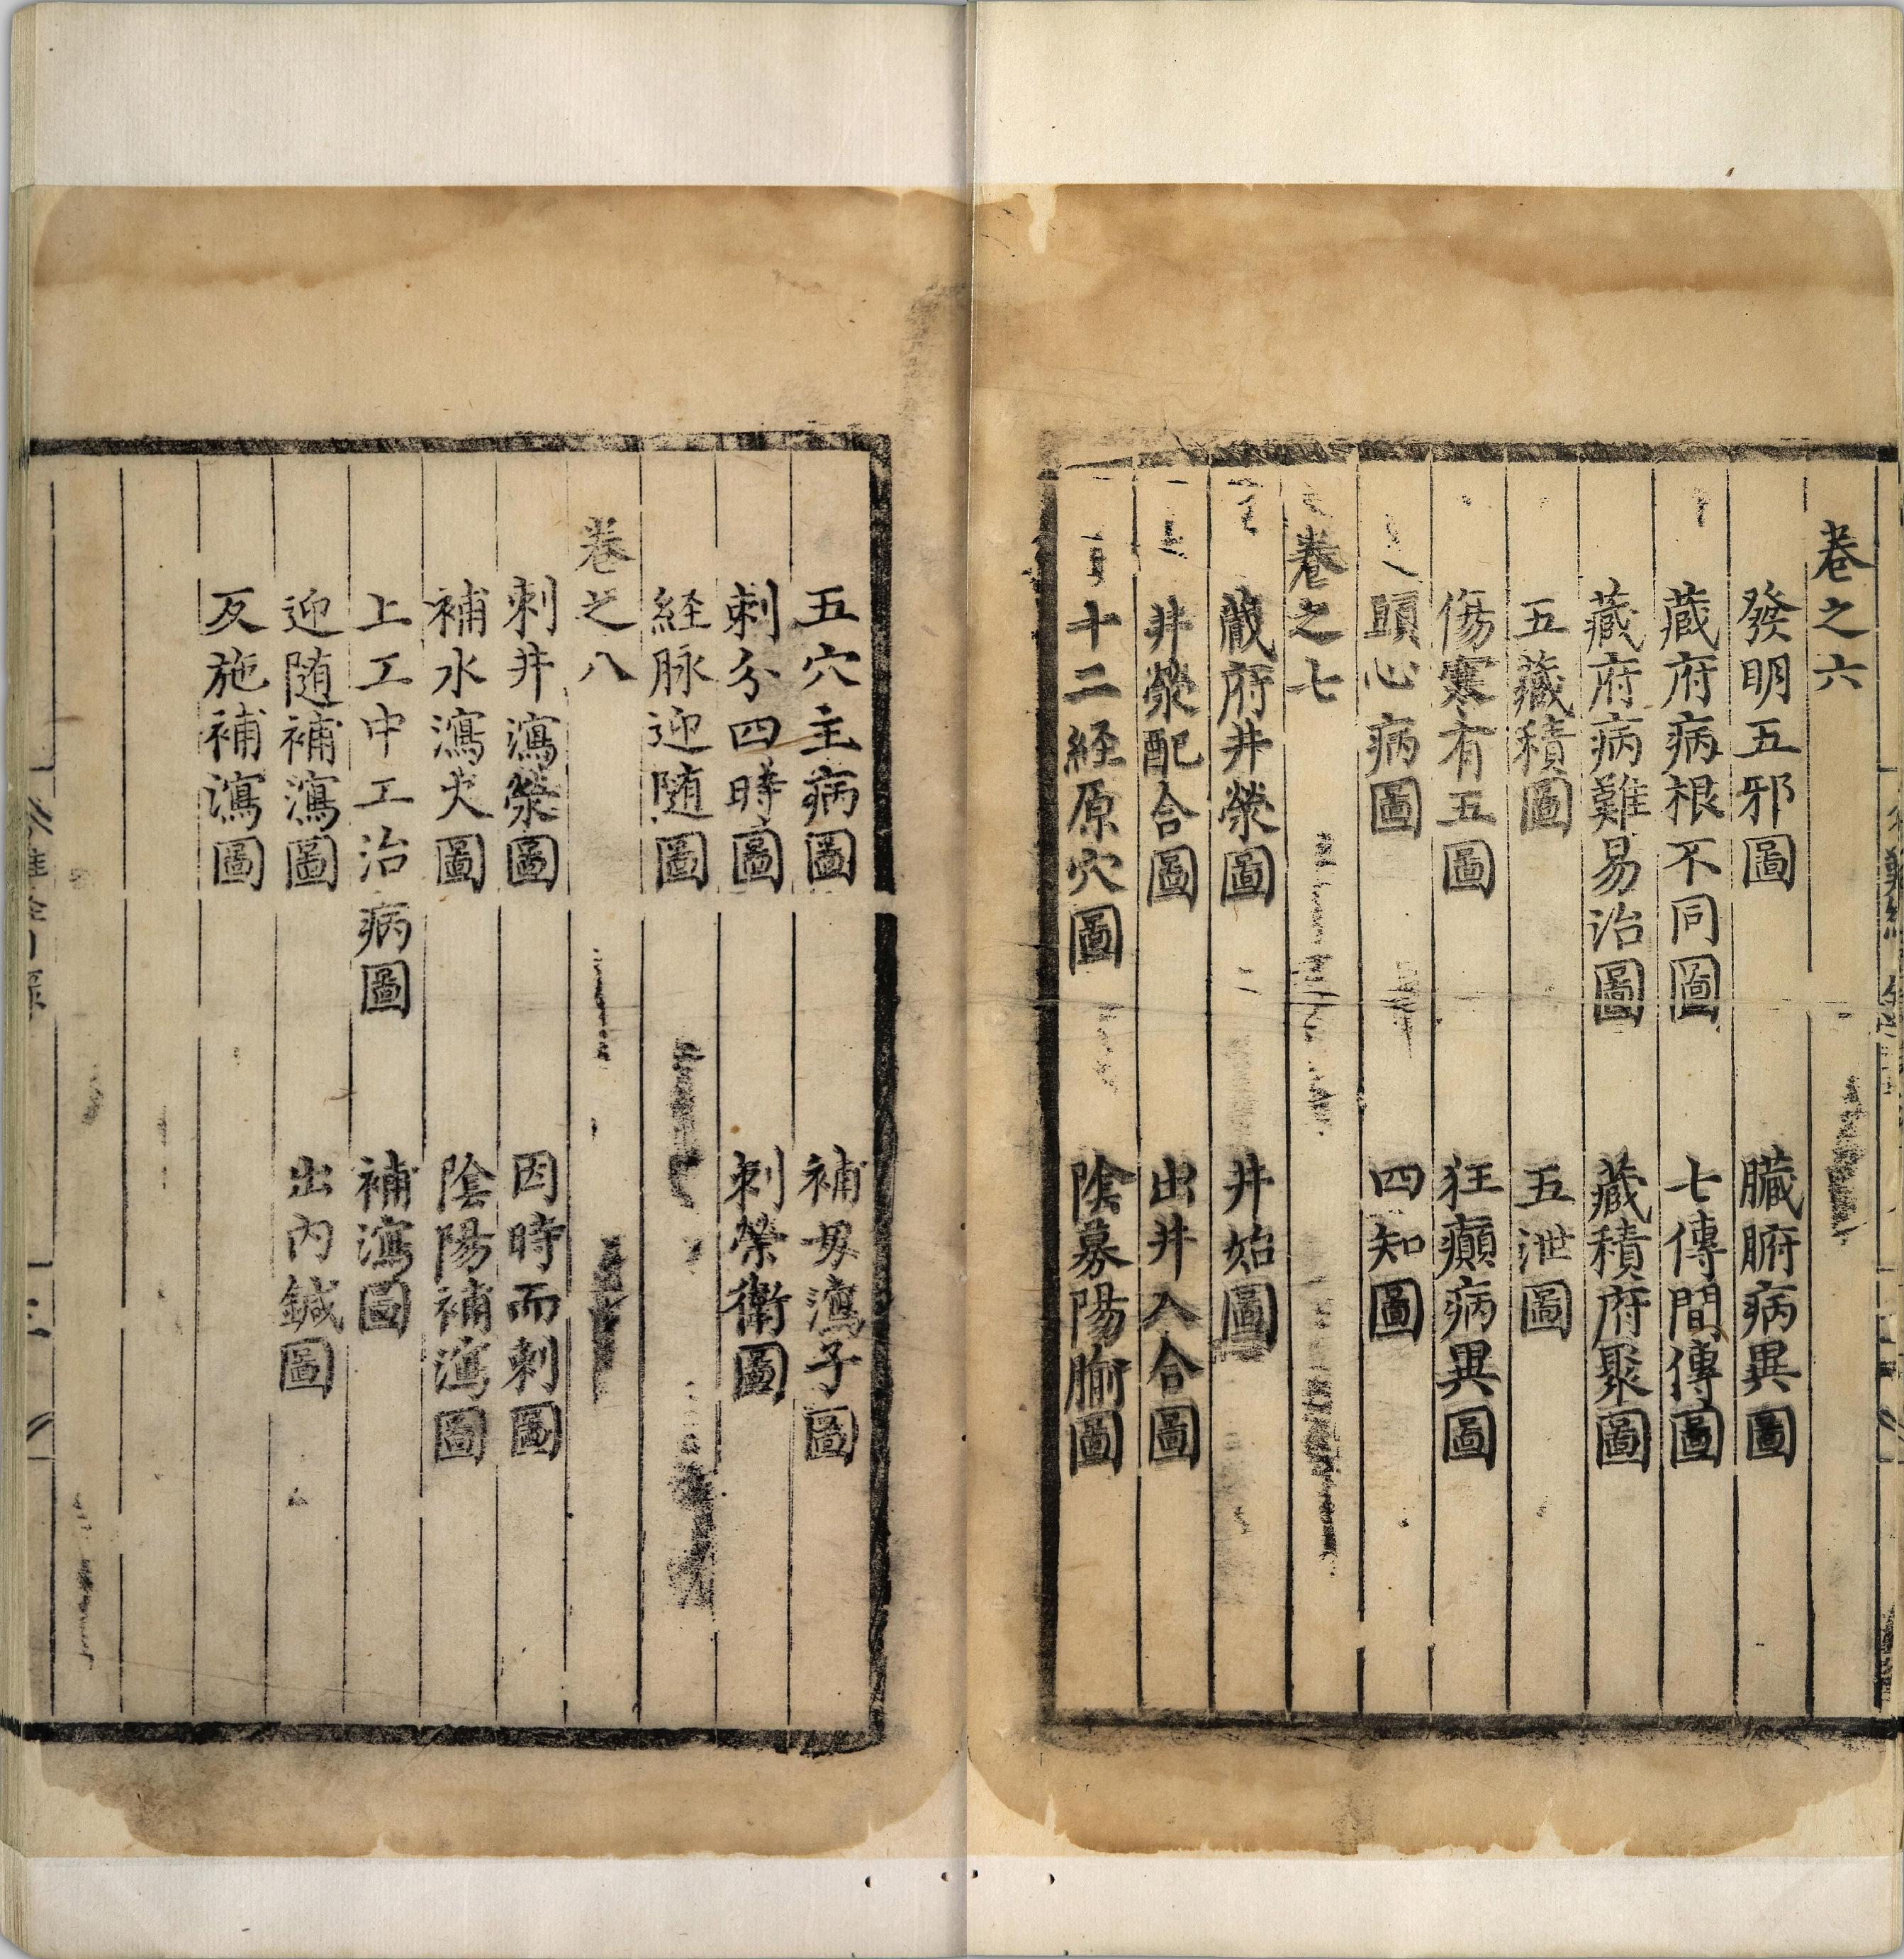 卷之六
發明五邪圖　臟腑病異圖
藏府病根不同圖　七傳間傳圖
藏府病難易治圖　藏積府聚圖
五藏積圖　五泄圖
傷寒有五圖　狂癲病異圖
頭心病圖　四知圖
卷之七
藏府井滎圖　井始圖
井滎配合圖　出井入合圖
十二経原穴圖　陰募陽腧圖
五穴主病圖　補母瀉子圖
刺分四時圖　刺榮衛圖
経脉迎随圖
卷之八
刺井瀉滎圖　因時而刺圖
補水瀉火圖　陰陽補瀉圖
上工中工治病圖　補瀉圖
迎随補瀉圖　出內鍼圖
反施補瀉圖